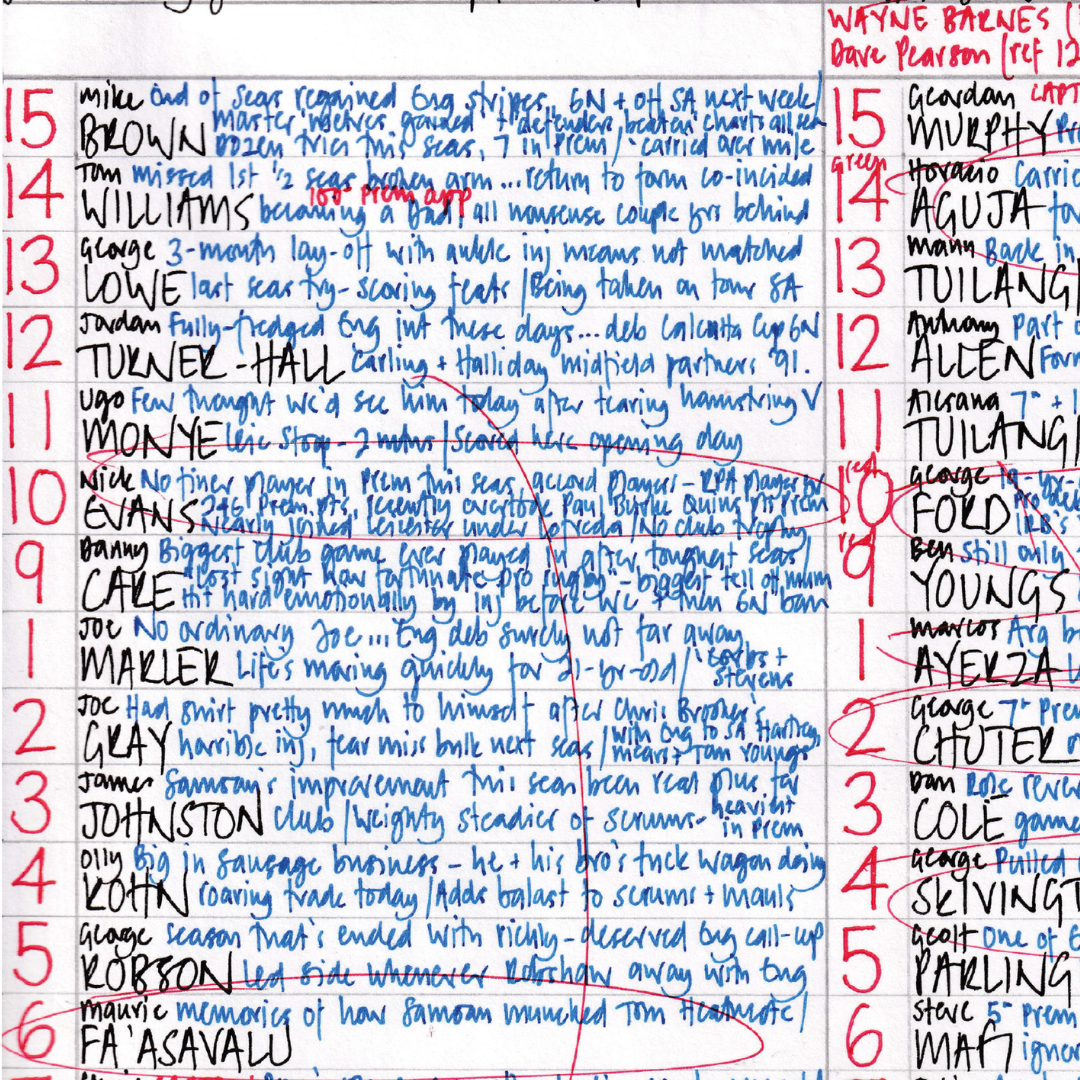 WAYNE BARNES (
Dave Pearson (ref 12
15 Mike End of seas regained Eng stripes, 6N + off SA next week/
BROWN master metres gained + defenders beaten charts all seas
Dozen tries this seas, 7 in Prem / carried over mile
14 Tom missed 1st 1/2 seas broken arm...return to form co-incided
100th Prem app
WILLIAMS becoming a Dad / all nonsense couple yrs behind
13 George 3-month lay-off with ankle inj means not matched
LOWE last seas try-scoring feats / Being taken on tour SA
12 Jordan Fully-fledged Eng int these days...deb Calcutta Cup 6N
TURNER-HALL Carling + Halliday midfield partners '91.
11 Ugo Few thought we'd see him today after tearing hamstring V
MONYE Leic Stoop - 2 mths / Scored here opening day
10 Nick No finer player in Prem this seas, accord players - RPA player yr
EVANS 246 Prem pts, recently overtook Paul Burke Quins pts Prem
Nearly joined Leicester under / No club
9 Danny Biggest club game ever played in after toughest seas/
CARE "Lost sight how fortunate pro rugby" - biggest tell off mum
Hit hard emotionally by inj before WC + then 6N ban
1 Joe No ordinary Joe...Eng deb surely not far away,
MARLER Life's moving quickly for 21-yr-old / Corbs +
Stevens
2 Joe Had shirt pretty much to himself after Chris Brooker's
GRAY horrible inj, fear miss bulk next seas / with Eng to SA Hartley
means Tom Youngs
3 James Samoan's improvement this seas been real plus for
JOHNSTON club / Weighty steadier of scrums - heaviest
in Prem
4 Olly Big in sausage business - he + his bro's tuck wagon doing
KOHN roaring trade today / Adds balast to scrums + mauls
5 George season that's ended with richly-deserved Eng call-up
ROBSON Led side whenever Robshaw away with Eng
6 Maurie memories of how Samoan munched Tom Heathcote/
FA'ASAVALU
15 Geordan CAPT
MURPHY
green
14 Horacio Carrie
AGUJA
13 Manu Back in
TUILAGI
12 Anthony Part o
ALLEN Form
11 Alesana 7th + 1
TUILAGI
red
10 George 19-yr-
FORD Pro deb
IRB's
red
9 Ben Still only
YOUNGS
1 Marcos Arg
AYERZA
2 George 7th Prem
CHUTER
3 Dan Role rever
COLE game
4 George Pulled
SKIVINGT
5 Geoff One of E
PARLING
6 Steve 5th Prem
MAFI ignor